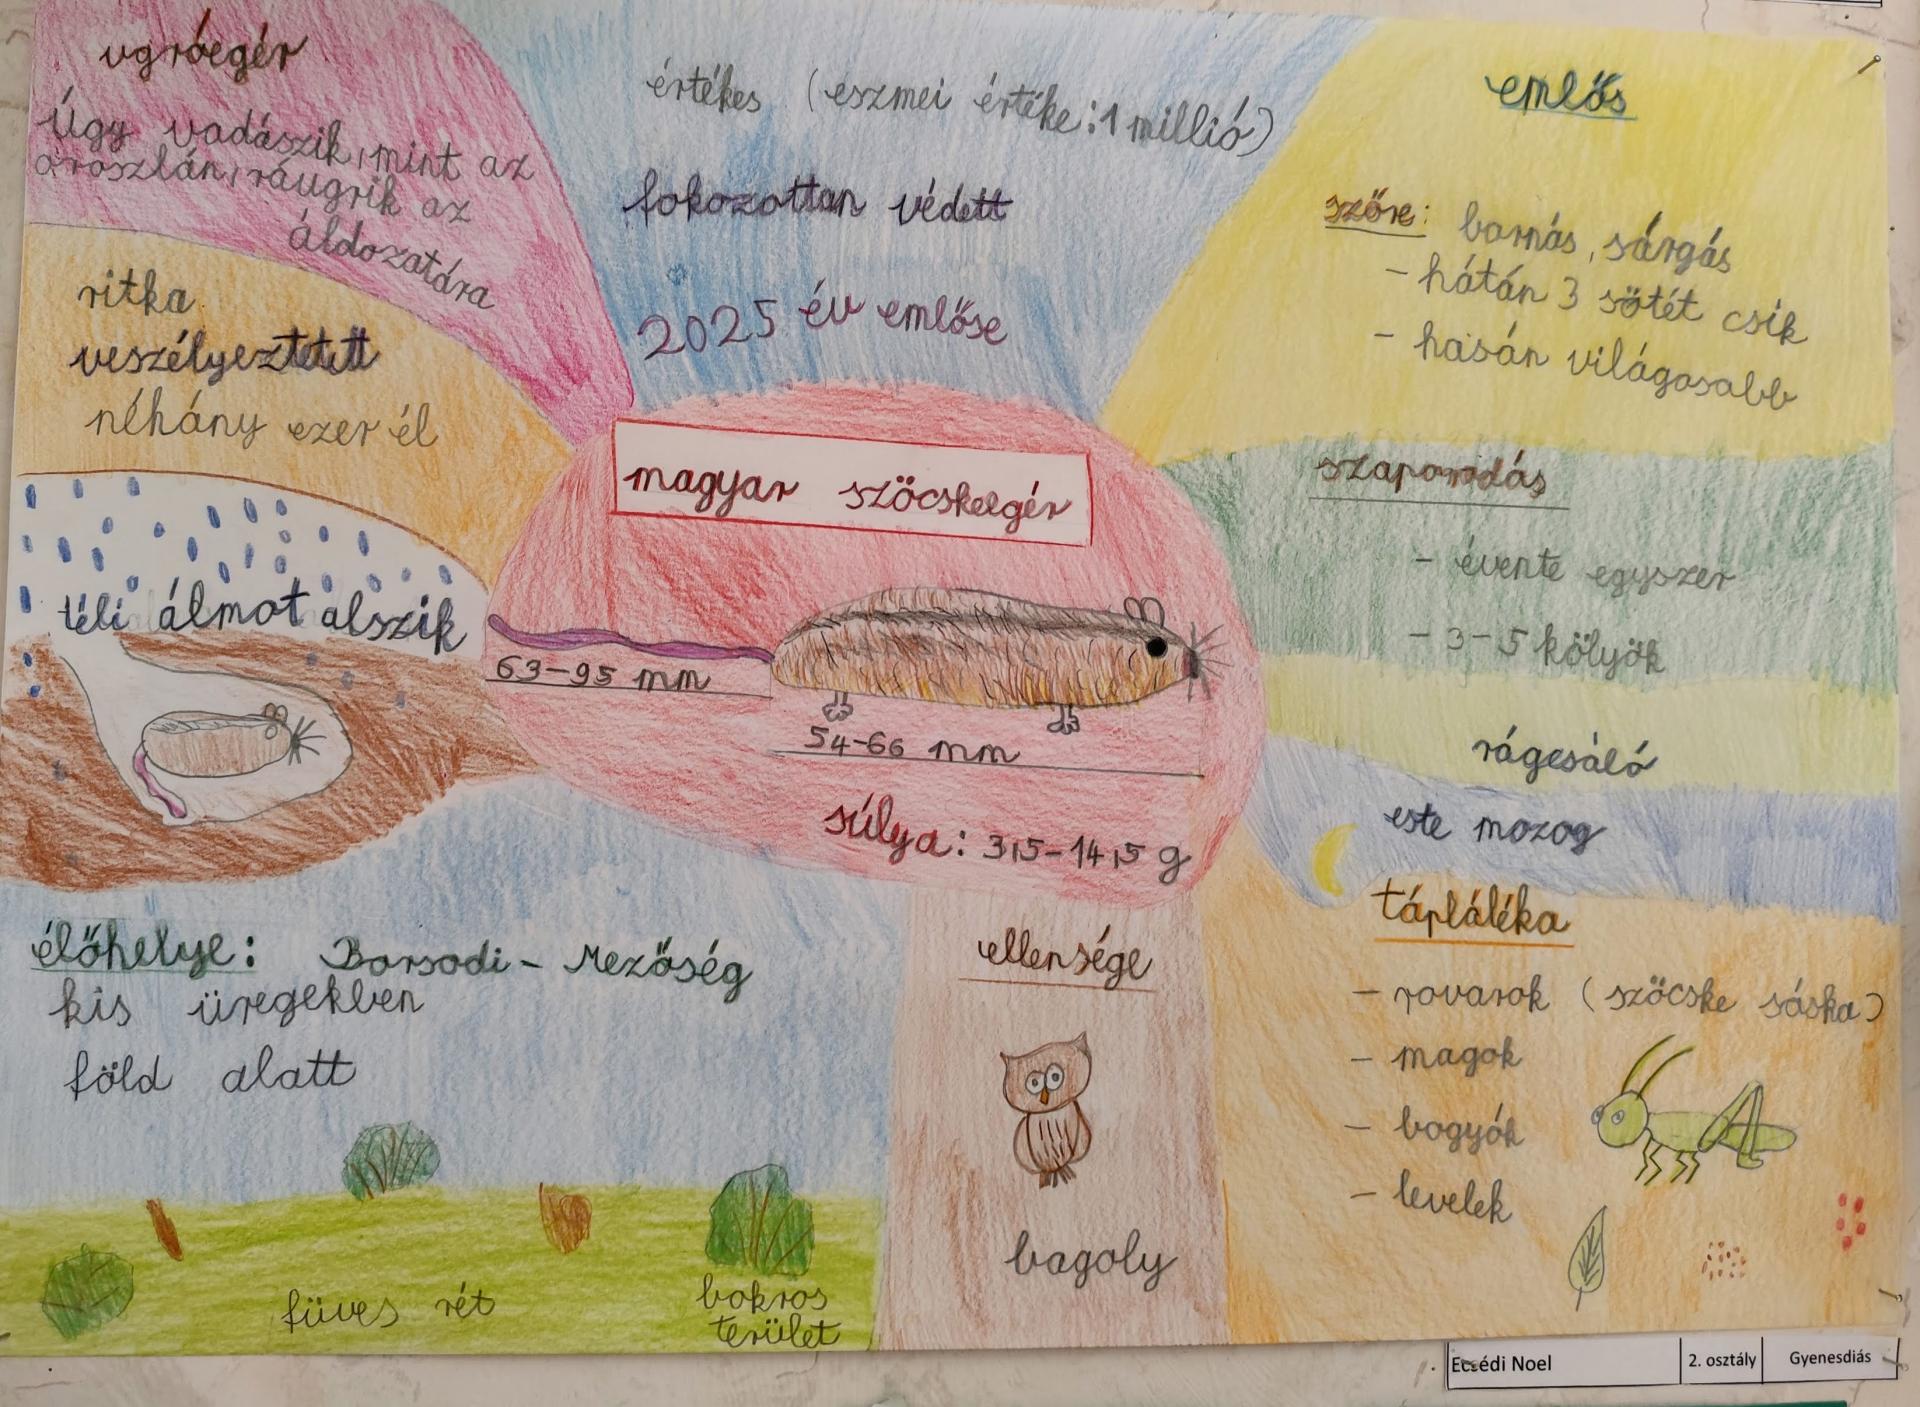 ugróegér
Úgy vadászik, mint az
oroszlán, ráugrik az
áldozatára
értékes (eszmei értéke: 1 millió)
fokozottan védett
2025 év emlőse
emlős
szőre: barnás, sárgás
- hátán 3 sötét csik
- hasán világosabb
ritka
veszélyeztetett
néhány ezer él
magyar szöcskeegér
63-95 mm
54-66 mm
súlya: 3,5-14,5 g
szaporodás
- évente egyszer
- 3-5 kölyök
rágcsáló
este mozog
téli álmot alszik
élőhelye: Borsodi-Mezőség
kis üregekben
föld alatt
füves rét
bokros
terület
ellensége
bagoly
tápláléka
- rovarok (szöcske sáska)
- magok
- bogyók
- levelek
Ecsédi Noel 2. osztály Gyenesdiás